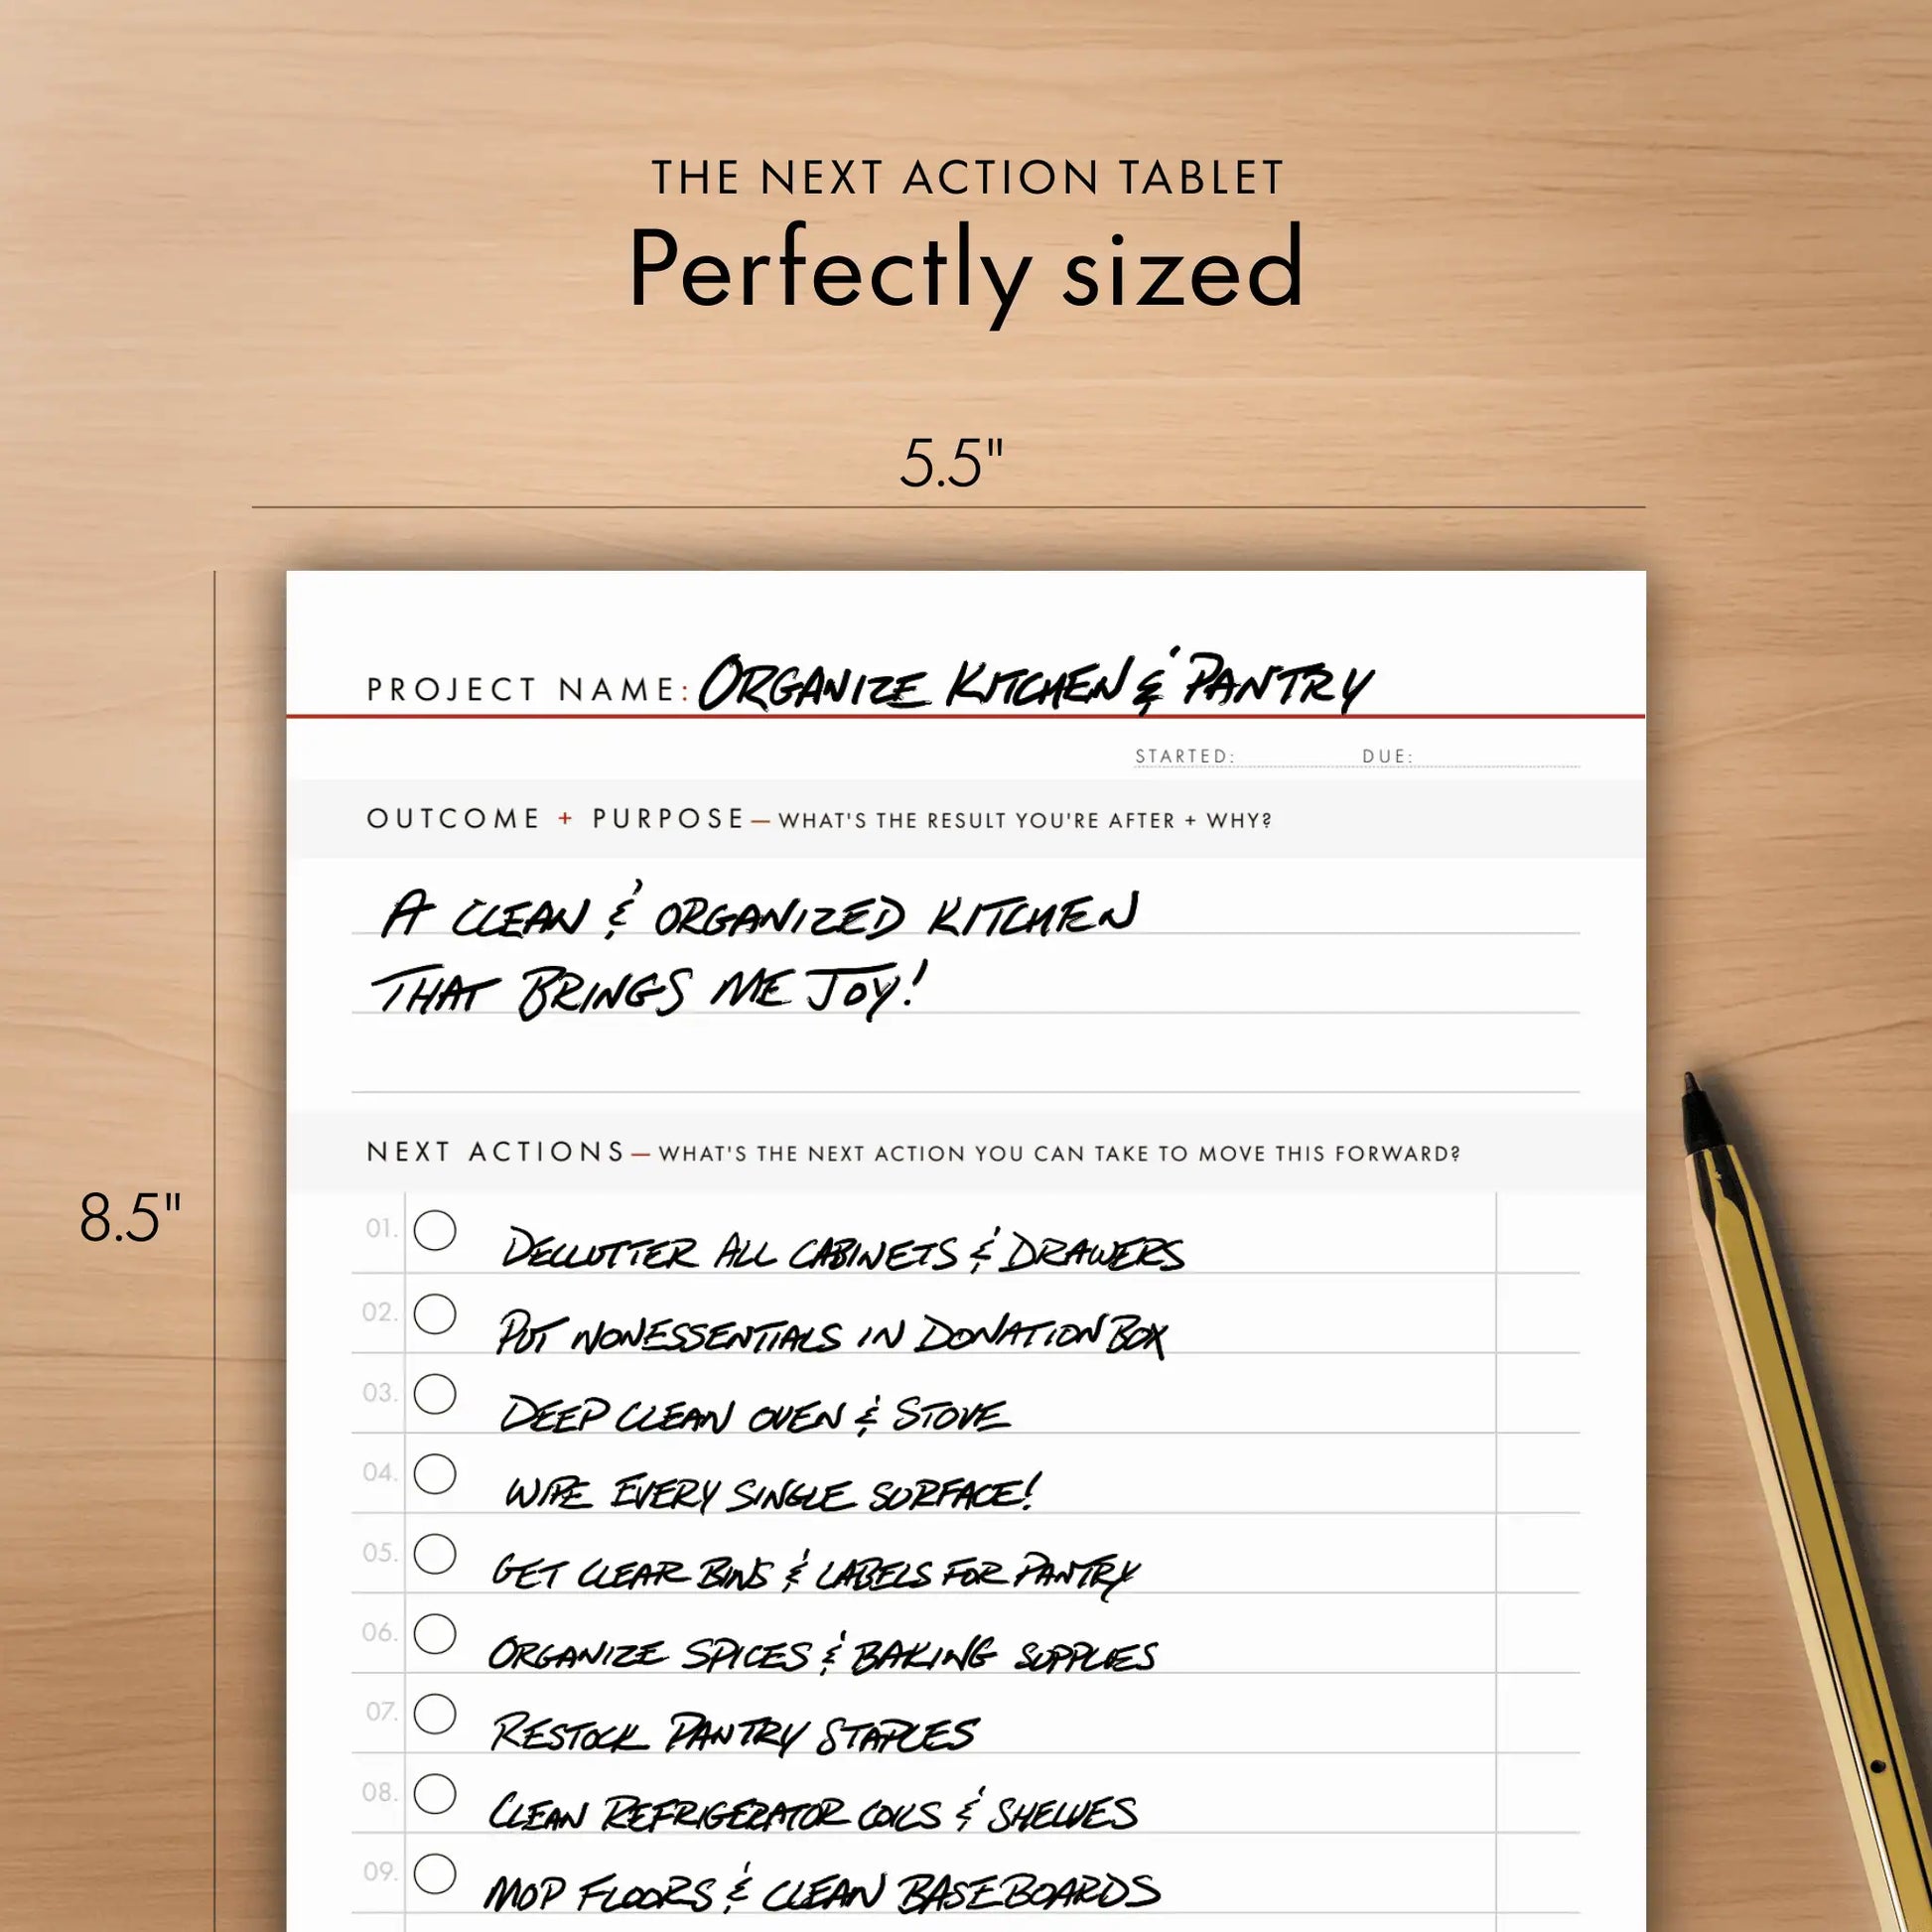 THE NEXT ACTION TABLET
Perfectly sized
5.5"
PROJECT NAME: ORGANIZE KITCHEN & PANTRY
STARTED: DUE:
OUTCOME + PURPOSE — WHAT'S THE RESULT YOU'RE AFTER + WHY?
A CLEAN & ORGANIZED KITCHEN
THAT BRINGS ME JOY!
NEXT ACTIONS — WHAT'S THE NEXT ACTION YOU CAN TAKE TO MOVE THIS FORWARD?
8.5"
01. DECLUTTER ALL CABINETS & DRAWERS
02. PUT NONESSENTIALS IN DONATION BOX
03. DEEP CLEAN OVEN & STOVE
04. WIPE EVERY SINGLE SURFACE!
05. GET CLEAR BINS & LABELS FOR PANTRY
06. ORGANIZE SPICES & BAKING SUPPLIES
07. RESTOCK PANTRY STAPLES
08. CLEAN REFRIGERATOR COILS & SHELVES
09. MOP FLOORS & CLEAN BASEBOARDS